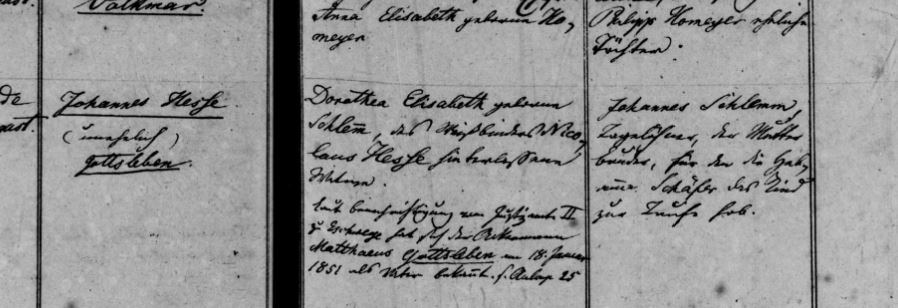 Volkmar.
Anna Elisabeth geborene Ho,
meyer
Philipp Homeyer eheliche
Tochter.
Johannes Hesse
(unehelich)
Gottsleben.
Dorothea Elisabeth geborene
Schlem, des Weißbinders Nico,
laus Hesse hinterlassene
Witwe.
laut Benachrichtigung vom Justizamte II
z. Eschwege hat sich der Ackermann
Matthaeus Gottsleben am 18. Januar
1851 als Vater bekannt. s. Anlage 25
Johannes Schlemm,
Tagelöhner, der Mutter
bruder, für den die Heb,
amme Schäfer das Kind
zur Taufe hob.